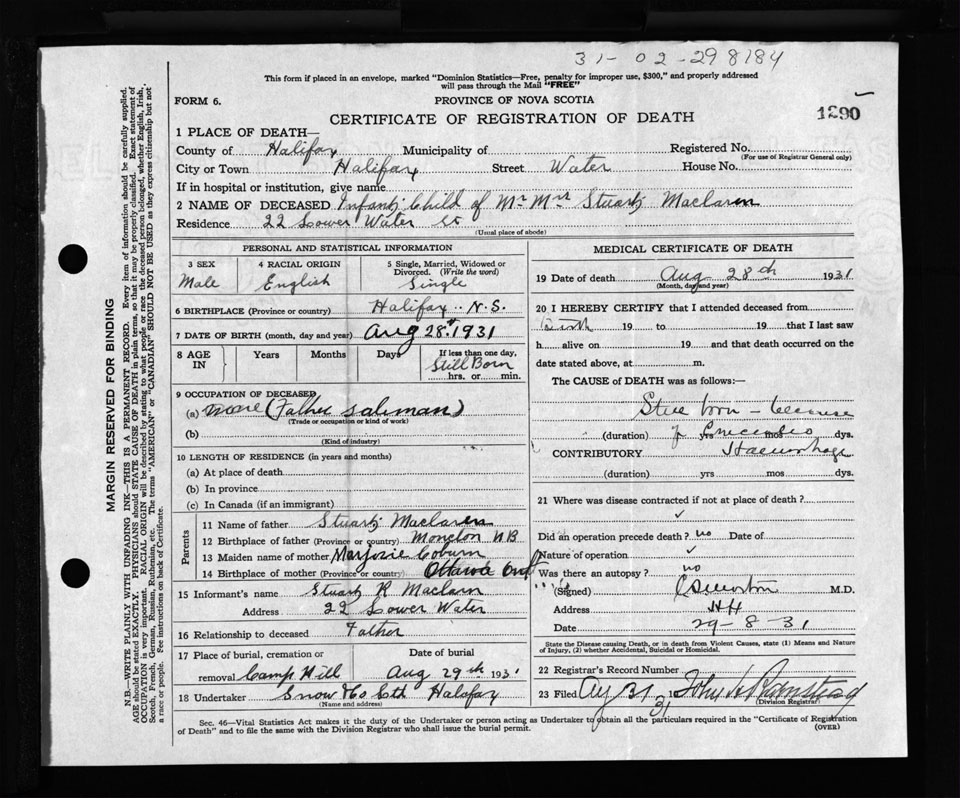 31-02-298184
This form if placed in an envelope, marked "Dominion Statistics—Free, penalty for improper use, $300," and properly addressed
will pass through the Mail "FREE"
FORM 6.
PROVINCE OF NOVA SCOTIA
1290
CERTIFICATE OF REGISTRATION OF DEATH
1 PLACE OF DEATH—
County of Halifax Municipality of Registered No.
(For use of Registrar General only)
City or Town Halifax Street Water House No.
If in hospital or institution, give name
2 NAME OF DECEASED Infant Child of Mr Mrs Stuart Maclaren
Residence 22 Lower Water St
(Usual place of abode)
PERSONAL AND STATISTICAL INFORMATION
3 SEX 4 RACIAL ORIGIN 5 Single, Married, Widowed or
Divorced. (Write the word)
Male English Single
6 BIRTHPLACE (Province or country) Halifax N.S.
7 DATE OF BIRTH (month, day and year) Aug 28th 1931
8 AGE IN Years Months Days If less than one day,
Still Born
hrs. or min.
9 OCCUPATION OF DECEASED
(a) none (Father salesman)
(Trade or occupation or kind of work)
(b)
(Kind of industry)
10 LENGTH OF RESIDENCE (in years and months)
(a) At place of death
(b) In province
(c) In Canada (if an immigrant)
Parents
11 Name of father Stuart Maclaren
12 Birthplace of father (Province or country) Moncton NB
13 Maiden name of mother Marjorie Coburn
14 Birthplace of mother (Province or country) Ottawa Ont
15 Informant's name Stuart R Maclaren
Address 22 Lower Water
16 Relationship to deceased Father
17 Place of burial, cremation or Date of burial
removal Camp Hill Aug 29th 1931
18 Undertaker Snow & Co Ltd Halifax
(Name and address)
MEDICAL CERTIFICATE OF DEATH
19 Date of death Aug 28th 1931
(Month, day and year)
20 I HEREBY CERTIFY that I attended deceased from
Birth 19 to 19 that I last saw
h alive on 19 and that death occurred on the
date stated above, at m.
The CAUSE of DEATH was as follows:—
Still born – because
(duration) of yrs mos dys.
CONTRIBUTORY Haemorrhage
(duration) yrs mos dys.
21 Where was disease contracted if not at place of death?
Did an operation precede death? no Date of
Nature of operation
Was there an autopsy? no
(Signed) M.D.
Address Hfx
Date 29-8-31
State the Disease causing Death, or in death from Violent Causes, state (1) Means and Nature
of Injury, (2) whether Accidental, Suicidal or Homicidal.
22 Registrar's Record Number
23 Filed Aug 31 31 John H
(Division Registrar)
Sec. 46—Vital Statistics Act makes it the duty of the Undertaker or person acting as Undertaker to obtain all the particulars required in the "Certificate of Registration
of Death" and to file the same with the Division Registrar who shall issue the burial permit.
(OVER)
MARGIN RESERVED FOR BINDING
N.B.—WRITE PLAINLY WITH UNFADING INK—THIS IS A PERMANENT RECORD. Every item of information should be carefully supplied.
AGE should be stated EXACTLY. PHYSICIANS should STATE CAUSE OF DEATH in plain terms, so that it may be properly classified. Exact statement of
OCCUPATION is very important. RACIAL ORIGIN will be described by stating to what people or race the deceased person belonged, whether English, Irish,
Scotch, French, German, Russian, Ruthenian, etc. The terms "AMERICAN" or "CANADIAN" SHOULD NOT BE USED as they express citizenship but not
a race or people. See instructions on back of Certificate.